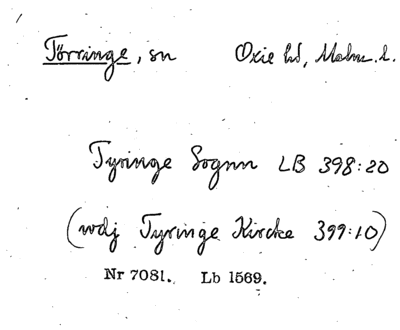 Törringe, sn Oxie hd, Malm. l.
Tyringe Sognn LB 398:20
(vdj Tyringe Kircke 399:10)
Nr 7081. Lb 1569.